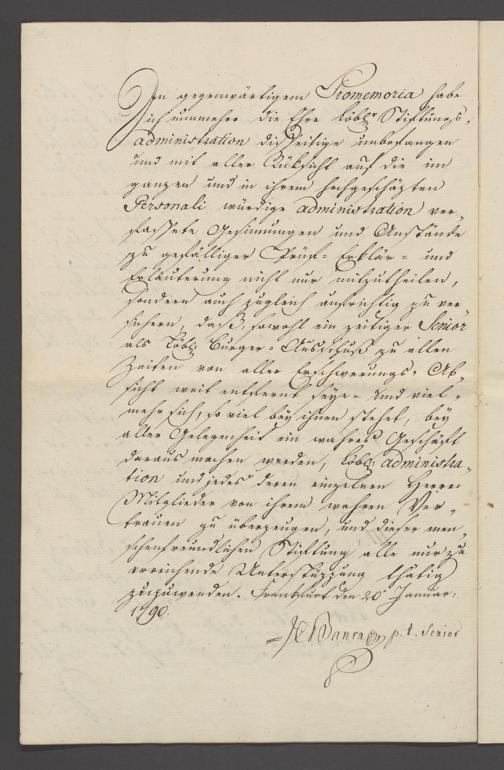 In gegenwärtigem Promemoria habe
ich nunmehro die Ehre löbl.r Stiftungs-
administration die unbefangen
und mit aller Rüksicht auf die im
ganzen und in ihrem hochgeschäzten
Personali würdige administration ver-
fassete Gesinnungen und Anstände
zu gefälliger Prüf- Erklär- und
Erläuterung nicht nur mitzutheilen,
sondern auch zugleich aufrichtig zu ver-
sichern, daß, sowohl ein zeitiger Senior
als Löbl: Burger-Ausschuß zu allen
Zeiten von aller Erschwerungs-Ab-
sicht weit entfernt seye- und viel-
mehr sich, so viel bey ihnen stehet, bey
aller Gelegenheit ein wahres Geschäft
daraus machen werden, löbl: administra-
tion und jedes deren einzelnen Herren
Mitglieder von ihrem wahren Ver-
trauen zu überzeugen, und dieser men-
schenfreundlichen Stiftung alle nur zu
erreichende Unterstüzzung thätig
zuzuwenden. Frankfurt den 20 Januar:
1790.
p. t. Senior